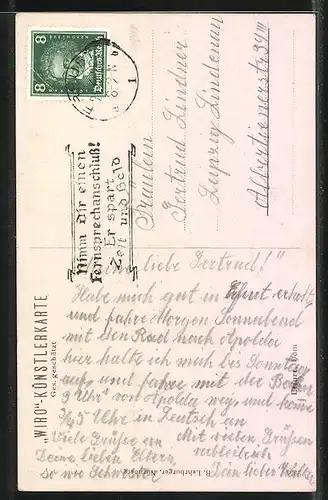 8
8
Deutsches Reich
Nimm Dir einen
Fernsprechanschluß!
Er spart
Zeit und Geld
Fräulein
Gertrud Lindner
Leipzig Lindenau
Albertinerstr. 34 III
"WIRO"-KÜNSTLERKARTE
Ges. geschützt
liebe Gertrud!"
Habe mich gut in Erfurt erholt
und fahre Morgen Sonnabend
mit den Rad nach Apolda
hier halte ich mich bis Sonntag
auf und fahre mit die Bahn
Uhr von Apolda weg und komme
5 Uhr in Leutsch an
Viele Grüße an
Deine lieben Eltern
so wie Schwester
Mit vielen Grüßen
verbleibt
Dein lieber Walter
Dom